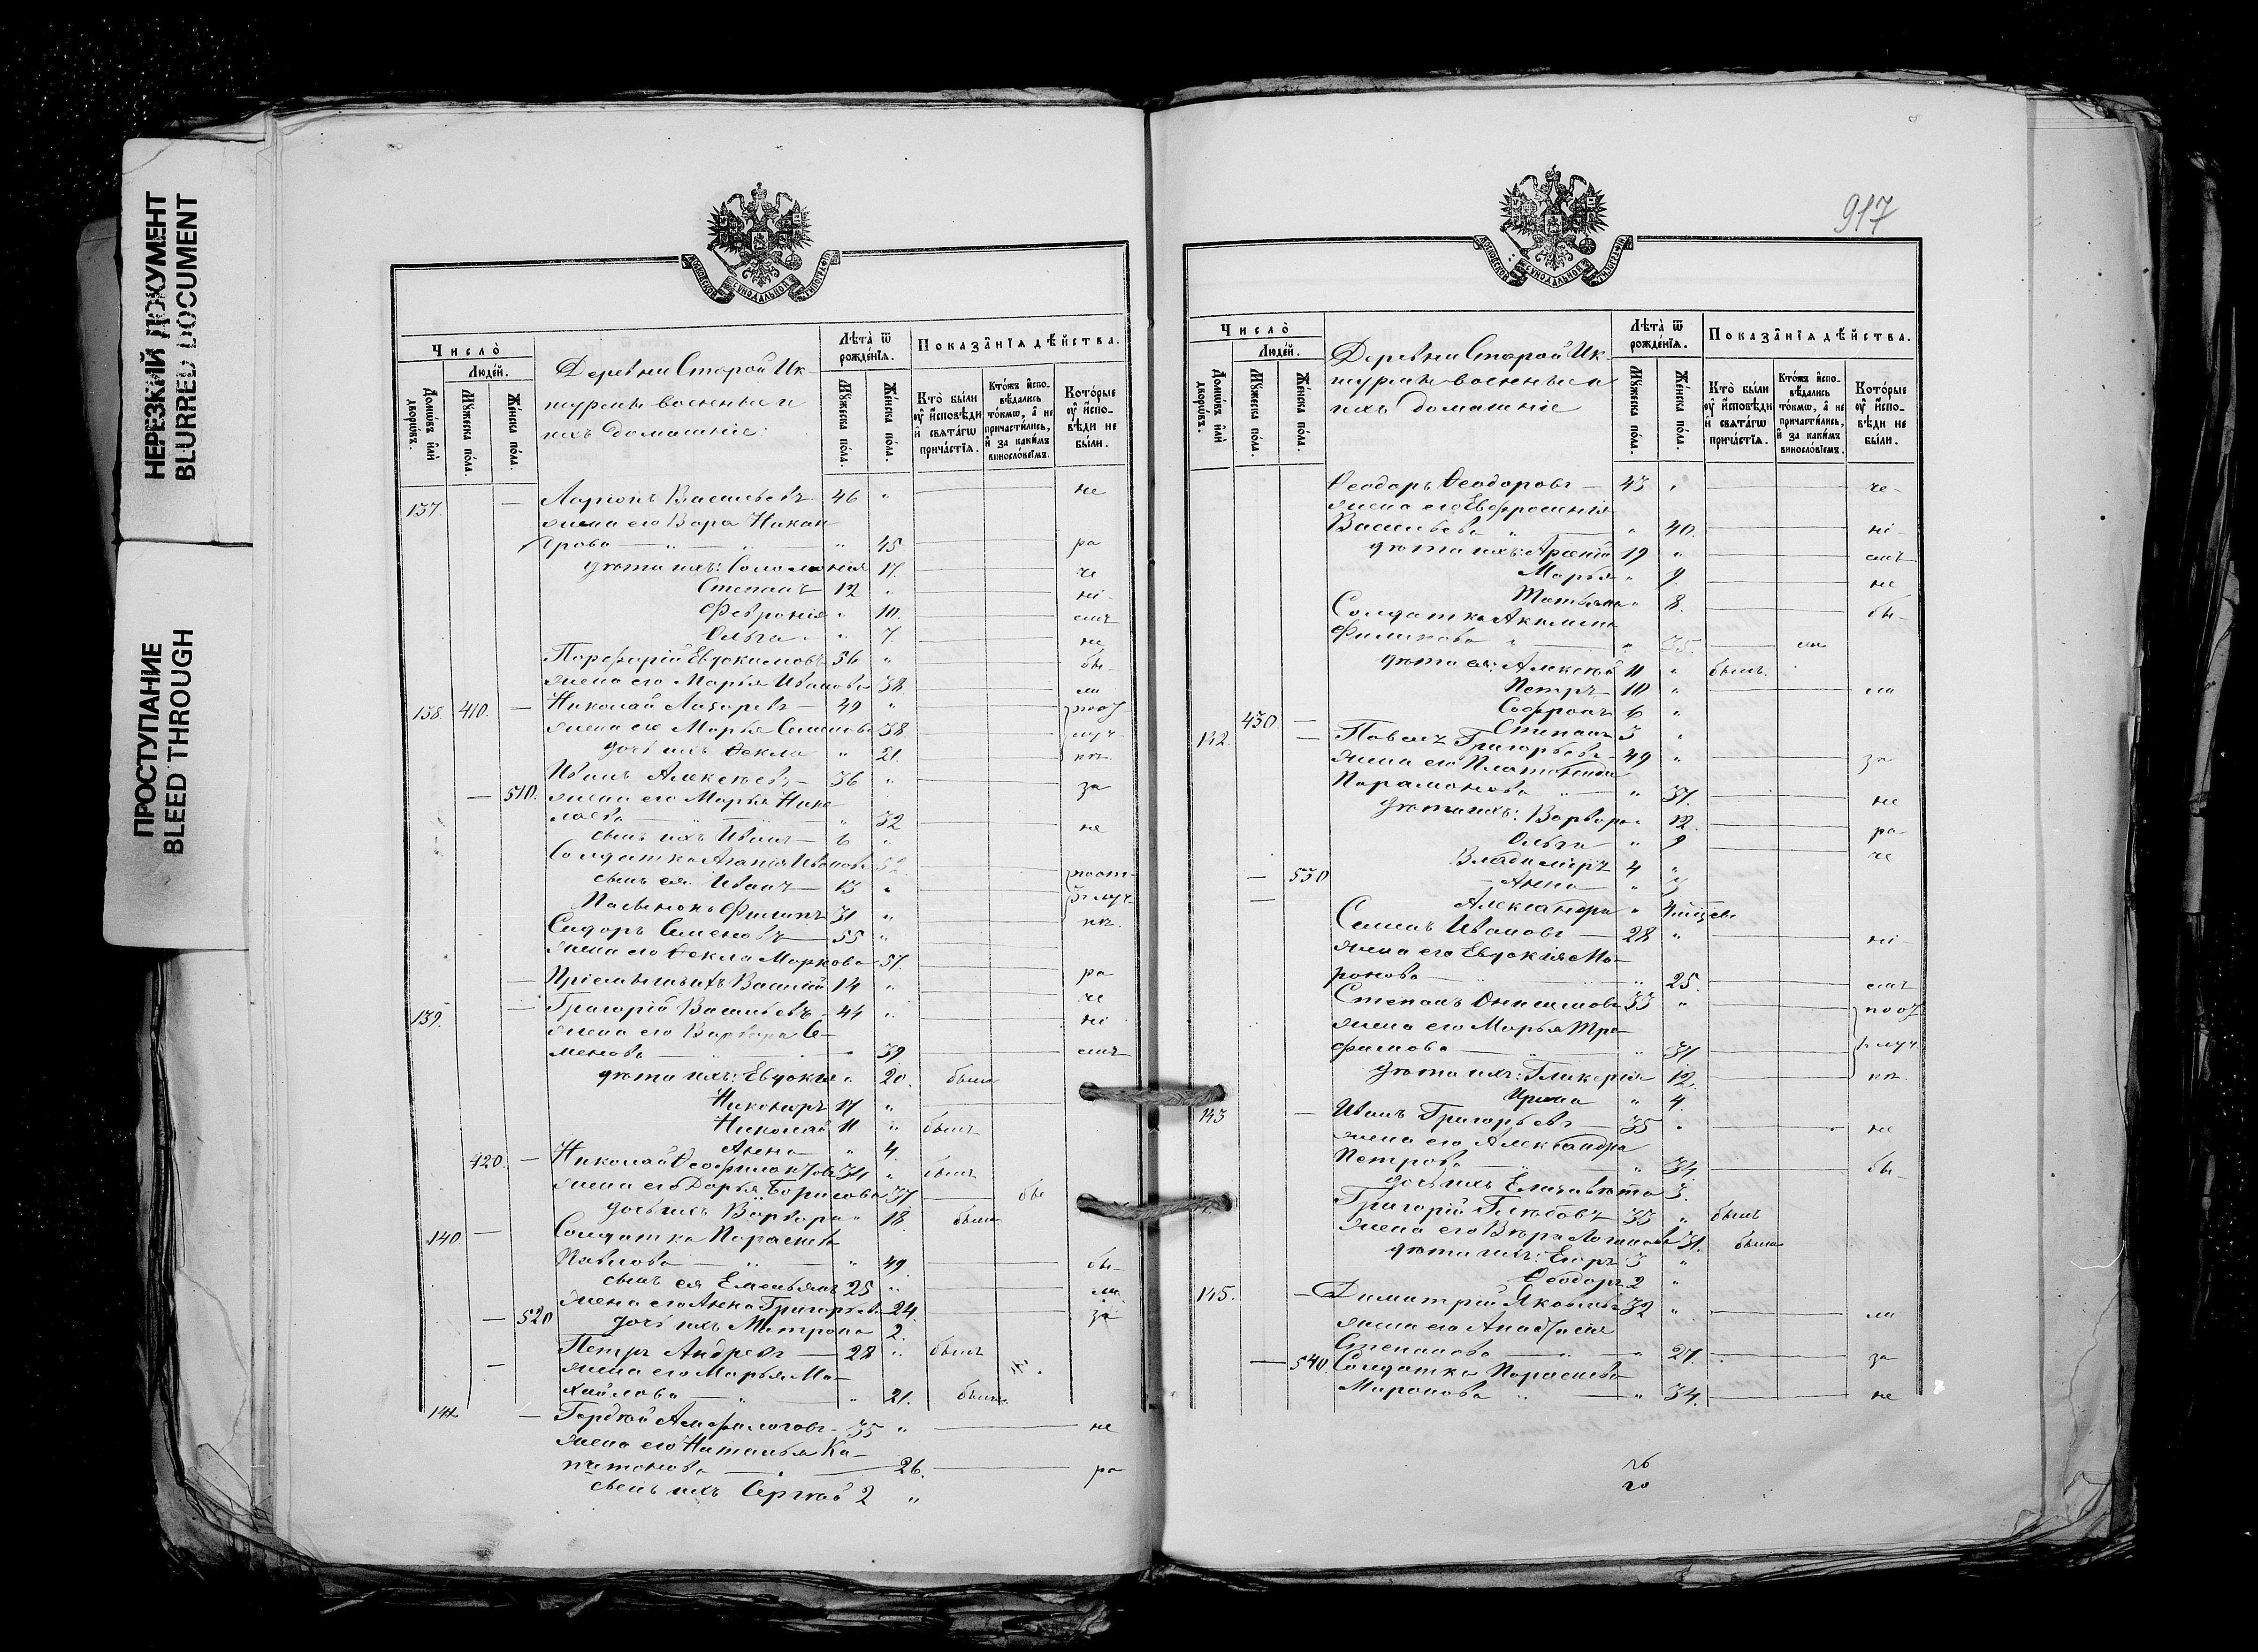 НЕРЕЗКИЙ ДОКУМЕНТ
BLURRED DOCUMENT
ПРОСТУПАНИЕ
BLEED THROUGH
МОСКОВСКОЙ СѴНОДАЛЬНОЙ ТИПОГРАФІИ
Число̀
Люде́й.
Домѡ́въ и҆лѝ дворѡ́въ.
Мꙋ́жеска по́ла.
Же́нска по́ла.
Деревни Старой Ик-
шурмы военные и
ихъ домашніе:
Лѣта̀ ѿ рожде́нїѧ.
Мꙋ́жеска по́ла.
Же́нска по́ла.
Показа̑нїѧ дѣ́йства.
Кто̀ бы́ли ᲂу҆ и҆сповѣ́ди и҆ свѧта́гѡ прича́стїѧ.
Кто́жъ и҆спо-вѣ́дались то́кмѡ, а҆ не причасти́лись, и҆ за каки́мъ винослові́емъ.
Кото́рые ᲂу҆ и҆спо-вѣ́ди не бы́ли.
137. — Ларіонъ Васильевъ — 46 " не
жена его Вера Никан-
дрова — " — " 45 ра
дѣти ихъ: Соломонія 17. че
Степанъ 12 " ні-
Февронія " 10. емъ
Ольга " 7. не
Порфирій Евдокимовъ 36 " бы-
жена его Марья Иванова 38 ли
138. 410. — Николай Лазаревъ — 49 "
жена его Марья Семенова 38
дочь ихъ Ѳекла " 21.
Иванъ Алексѣевъ — 36 " за
— 510. жена его Марья Нико-
лаева " 32 не
сынъ ихъ Иванъ — 6 "
Солдатка Агапія Иванова
сынъ ея Иванъ — 13 "
Филипъ 31 "
Сидоръ Семеновъ — 55 "
жена его Ѳекла Маркова 57. ра
— Василій 14 " че
139. — Григорій Васильевъ — 44 " ні
жена его Варвара Се-
менова — " 39 емъ
дѣти ихъ: Евдокія " 20. была
Никаноръ 17 "
Николай 11 " былъ
Анна " 4.
420. — Николай Ѳеофилактовъ 34 " былъ
жена его Дарья Борисова 37 бы
дочь ихъ Варвара " 18 была
140 — Солдатка Параскева
Павлова — " — " 49 бы-
сынъ ея Емельянъ 25 " ли
— 520 жена его Анна Григорьева 24. за
дочь ихъ Матрона 2.
Петръ Андреевъ — 28 " былъ
— жена его Марья Ми-
хайлова — " " 21. была
141. — 35 " не
жена его Наталья Ка-
питонова — 26. ра
сынъ ихъ Сергѣй 2 "
917
МОСКОВСКОЙ СѴНОДАЛЬНОЙ ТИПОГРАФІИ
Число̀
Люде́й.
Домѡ́въ и҆лѝ дворѡ́въ.
Мꙋ́жеска по́ла.
Же́нска по́ла.
Деревни Старой Ик-
шурмы военные и
ихъ домашніе
Лѣта̀ ѿ рожде́нїѧ.
Мꙋ́жеска по́ла.
Же́нска по́ла.
Показа̑нїѧ дѣ́йства.
Кто̀ бы́ли ᲂу҆ и҆сповѣ́ди и҆ свѧта́гѡ прича́стїѧ.
Кто́жъ и҆спо-вѣ́дались то́кмѡ, а҆ не причасти́лись, и҆ за каки́мъ винослові́емъ.
Кото́рые ᲂу҆ и҆спо-вѣ́ди не бы́ли.
Ѳеодоръ Ѳеодоровъ — 43 " че-
жена его Евфросинія
Васильева " " 40. ні-
дѣти ихъ: Арсеній 19 " емъ
Марья " 9. не
Татьяна " 8. бы-
Солдатка Акилина
Филипова " " 35.
дѣти ея: Алексѣй 11 " былъ.
Петръ — 10 " ли
Софронъ 6 "
430 — Степанъ 3 "
142. — Павелъ Григорьевъ — 49 " за
жена его Платонида
Парамонова " 37. не
дѣти ихъ: Варвара " 12. ра-
Ольга " 9 че
Владиміръ 4 "
— 530 Анна — " 3
— Александра "
Семенъ Ивановъ — 28 " ні-
жена его Евдокія Ма-
ронова — " 25. емъ
Степанъ Онисимовъ 33 "
жена его Марья Тро-
фимова — " 31
дѣти ихъ: Гликерія 12.
Ирина " 4.
143 — Иванъ Григорьевъ — 35 " не
жена его Александра
Петрова — " 34 бы-
дочь ихъ Елисавета 3.
Григорій Глѣбовъ 33 " былъ
жена его Вѣра Логинова 31. была
дѣти ихъ: Егоръ 3 "
Ѳеодоръ 2 "
145. — Димитрій Яковлевъ 32 " ли
жена его Анастасія
Степанова — " 27. за
— 540. Солдатка Параскева
Миронова " " 34. не